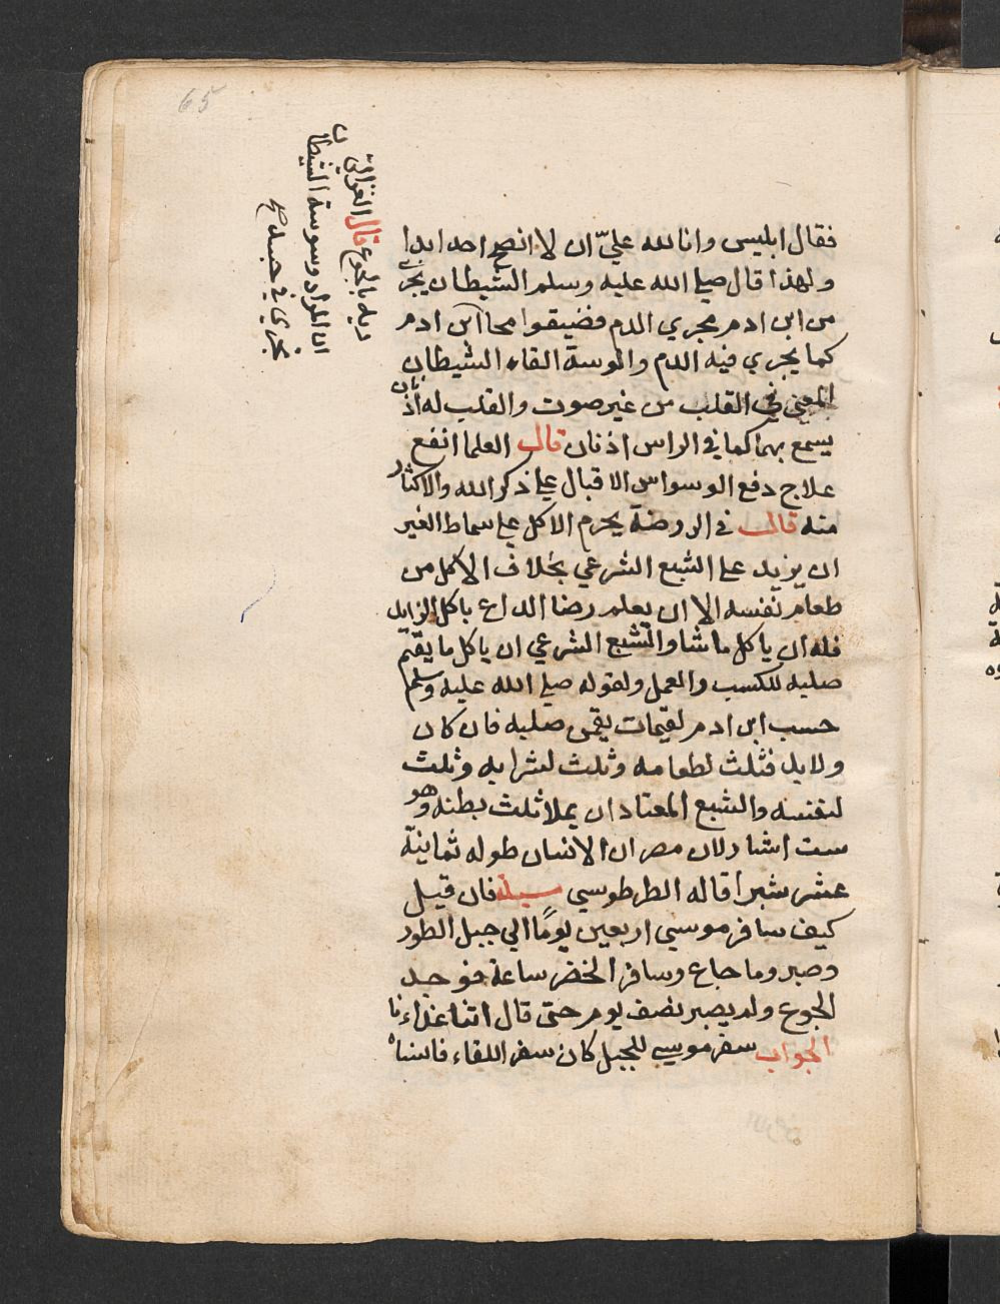 65
فقال ابليس وانا لله عليّ ان لا انصح احد ابدا
ولهذا قال صلي الله عليه وسلم الشيطان يجري
من ابن ادم مجري الدم فضيقوا مجاري ابن ادم
كما يجري فيه الدم والوسوسة القاء الشيطان
المعني في القلب من غير صوت والقلب له أذنان
يسمع بهما كما في الراس اذنان قال العلما انفع
علاج دفع الوسواس الاقبال علي ذكر الله والاكثار
منه قال في الروضة يحرم الاكل علي سماط الغير
ان يزيد علي الشبع الشرعي بخلاف الاكل من
طعام نفسه الا ان يعلم رضا الداع باكل الزايد
فله ان ياكل ما شا والشبع الشرعي ان ياكل ما يقيم
صلبه للكسب والعمل ولقوله صلي الله عليه وسلم
حسب ابن ادم لقيمات يقمن صلبه فان كان
ولابد فثلث لطعامه وثلث لشرابه وثلث
لنفسه والشبع المعتاد ان يملا ثلث بطنه وهو
ست اشبار لان مصران الانسان طوله ثمانية
عشر شبرا قاله الطرطوسي مسيلة فان قيل
كيف سافر موسي اربعين يومًا الي جبل الطور
وصبر وما جاع وسافر الخضر ساعة فوجد
الجوع ولم يصبر نصف يوم حتى قال اتنا غداءنا
الجواب سفر موسي للجبل كان سفر اللقاء فانساه
ريه بالجوع قال الغزالي
ان المراد وسوسة الشيطان
تجري في جسده صح